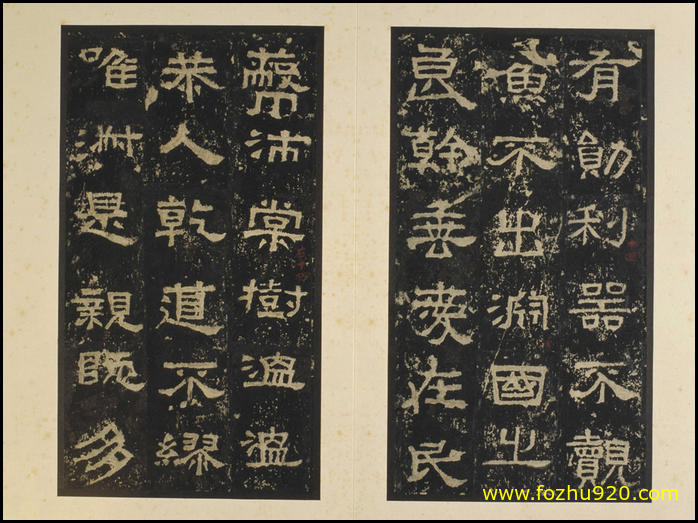 有勛利器不覿
魚不出淵國之
良幹垂愛在民
蔽沛棠樹温温
恭人乾道不繆
唯淑是親既多
www.fozhu920.com